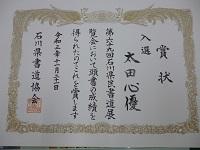 賞状
入選
太田心優
第六十九回石川県書道展
覧会において頭書の成績を
得られたのでこれを賞します
令和三年十一月二十一日
石川県書道協会